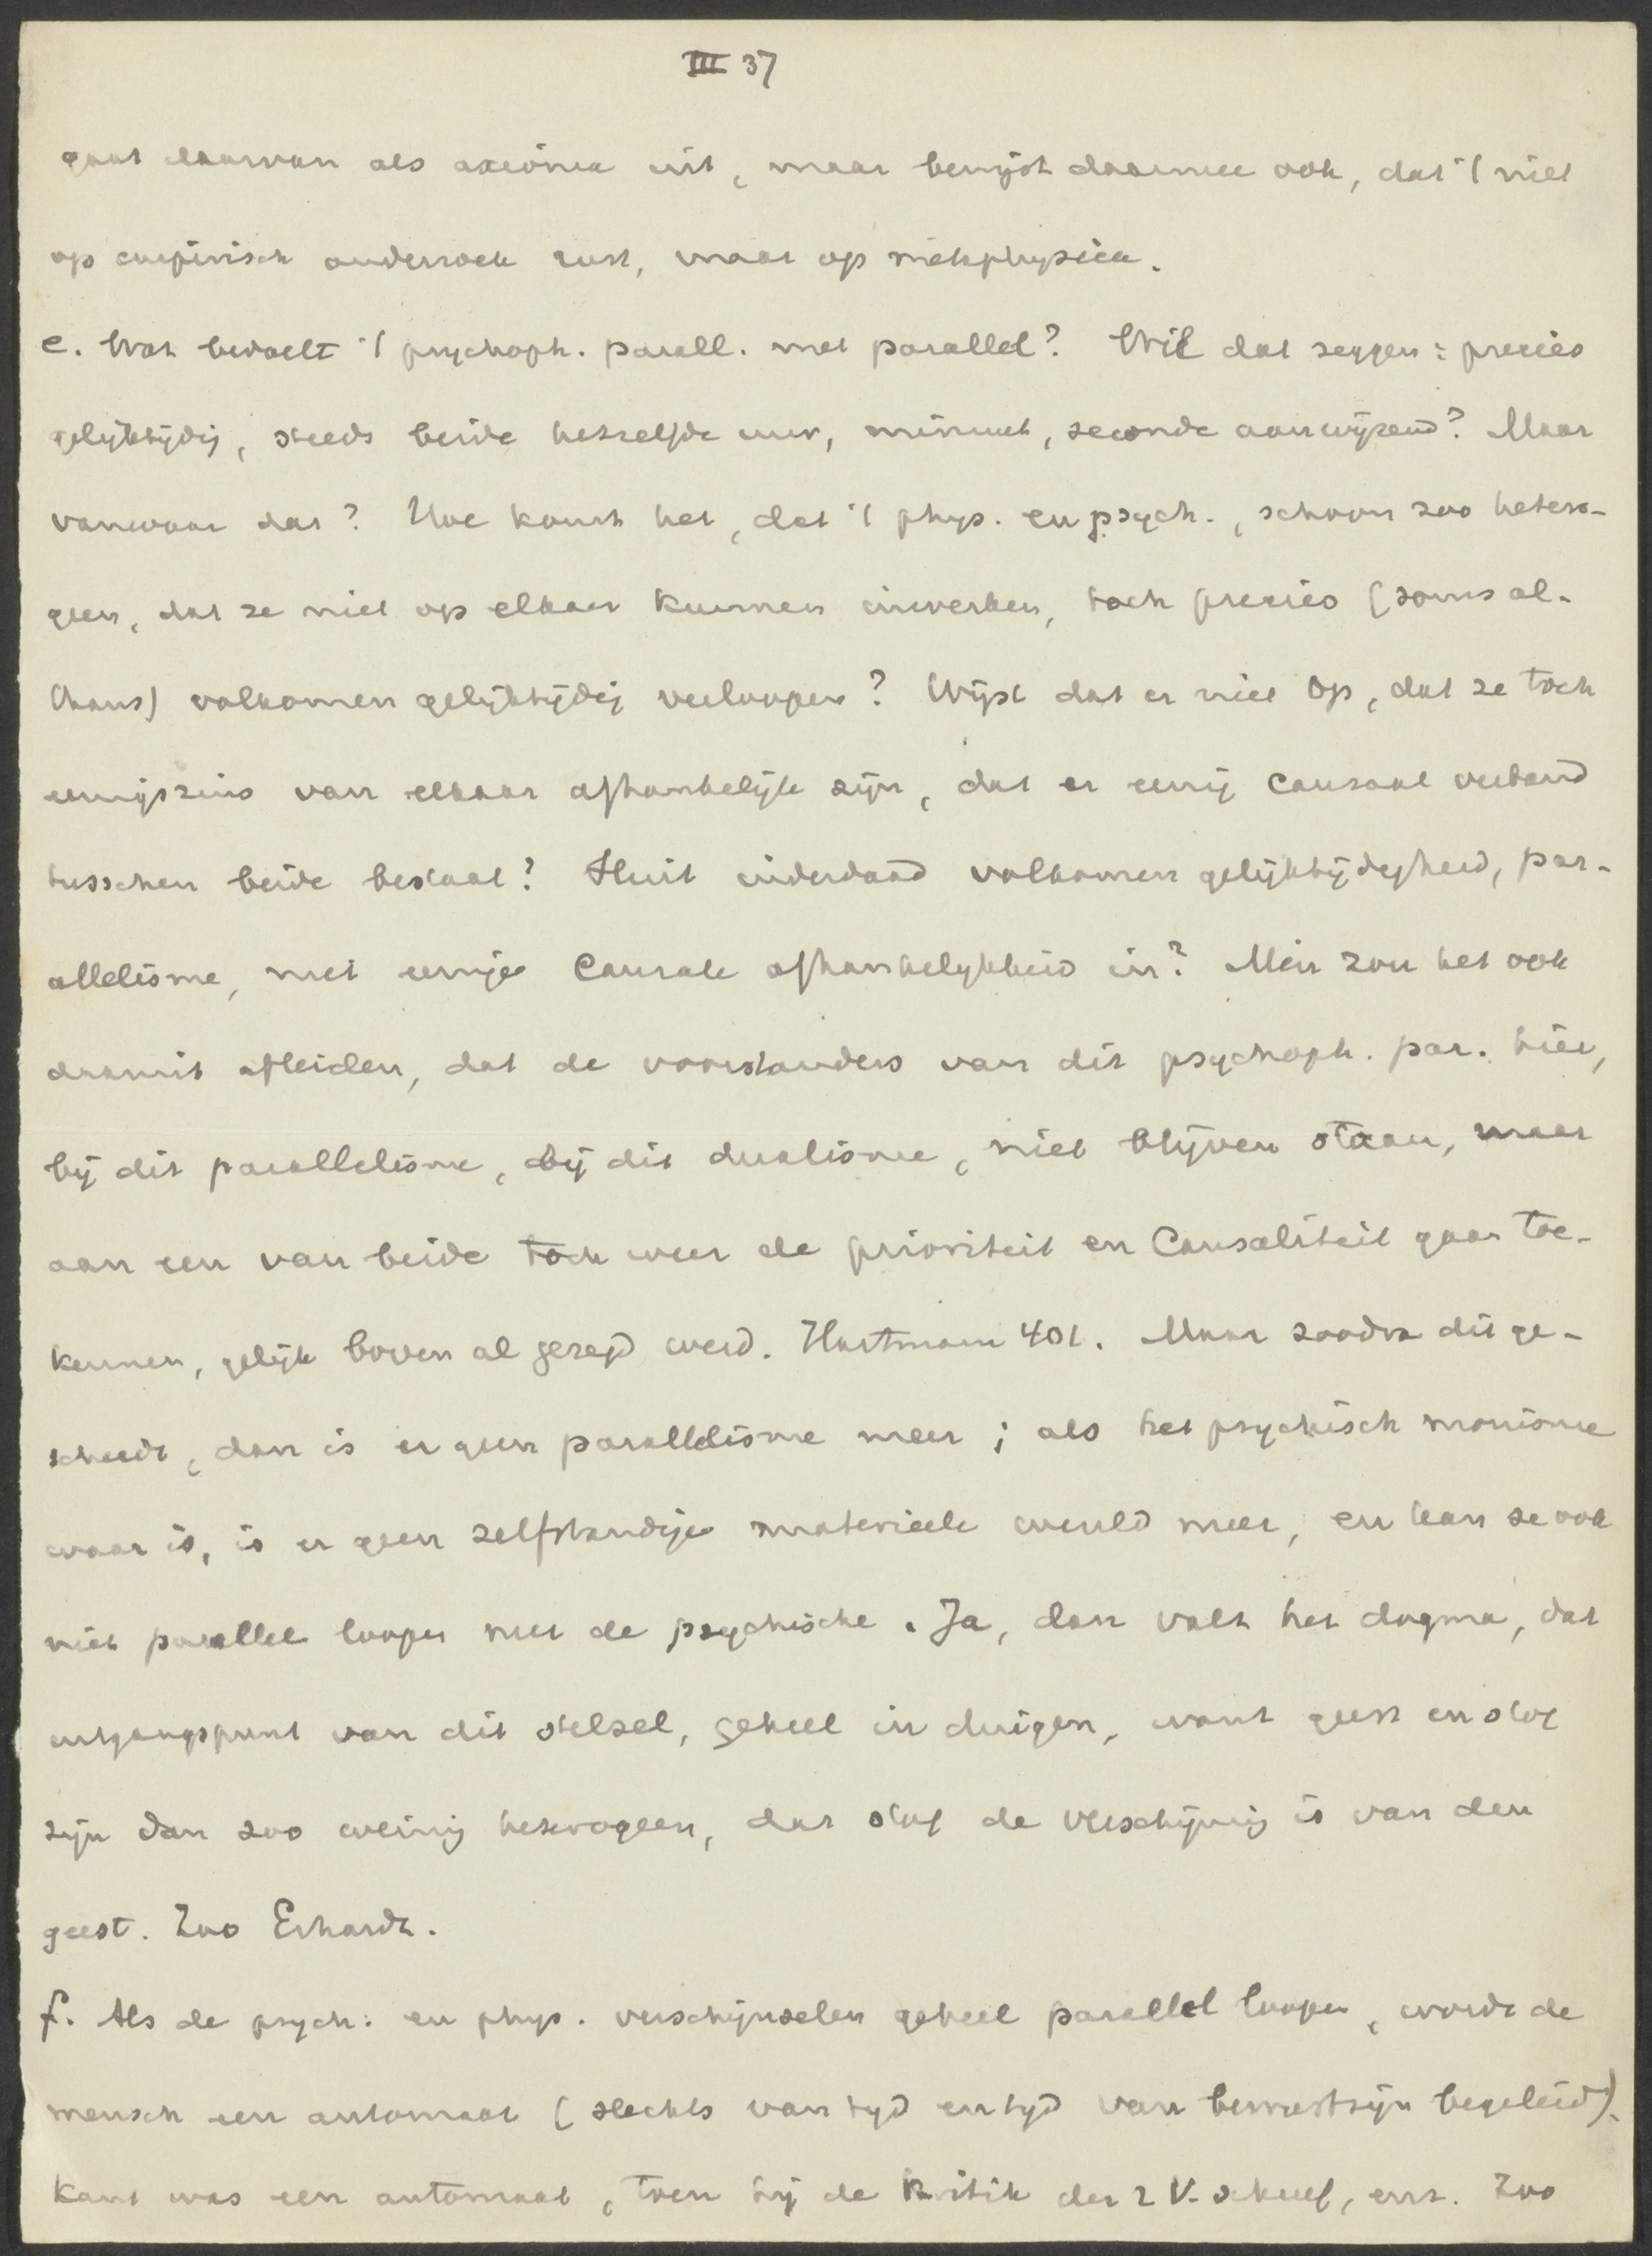 III 37
gaat daarvan als axioma uit, maar bewijst daarmee ook, dat 't niet
op empirisch onderzoek rust, maar op metaphysica.
e. Wat bedoelt 't psychoph. parall. met parallel? Wil dat zeggen: precies
gelijktijdig, steeds beide hetzelfde uur, minuut, seconde aanwijzend? Maar
vanwaar dat? Hoe komt het, dat 't phys. en psych., schoon zoo hetero-
geen, dat ze niet op elkaar kunnen inwerken, toch precies (soms al-
thans) volkomen gelijktijdig verloopen? Wijst dat er niet op, dat ze toch
eenigszins van elkaar afhankelijk zijn, dat er eenig causaal verband
tusschen beide bestaat? Sluit inderdaad volkomen gelijktijdigheid, par-
allelisme, niet eenige causale afhankelijkheid in? Men zou het ook
daaruit afleiden, dat de voorstanders van dit psychoph. par. hier,
bij dit parallelisme, bij dit dualisme, niet blijven staan, maar
aan een van beide toch weer de prioriteit en causaliteit gaan toe-
kennen, gelijk boven al gezegd werd. Hartmann 401. Maar zoodra dit ge-
schiedt, dan is er geen parallelisme meer; als het psychisch monisme
waar is, is er geen zelfstandige materieele wereld meer, en kan ze ook
niet parallel loopen met de psychische. Ja, dan valt het dogma, dat
uitgangspunt van dit stelsel, geheel in duigen, want geest en stof
zijn dan zoo weinig heterogeen, dat stof de verschijning is van den
geest. Zoo Erhardt.
f. Als de psych: en phys. verschijnselen geheel parallel loopen, wordt de
mensch een automaat (slechts van tijd en tijd van bewustzijn begeleid).
Kant was een automaat, toen hij de Kritik der r V. schreef, enz. Zoo